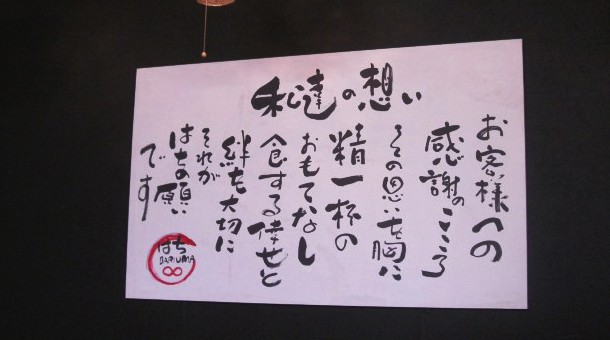 私達の想い
お客様への
感謝のこころ
その思いを胸に
精一杯の
おもてなし
食する倖せと
絆を大切に
それが
はちの願い
です
はち